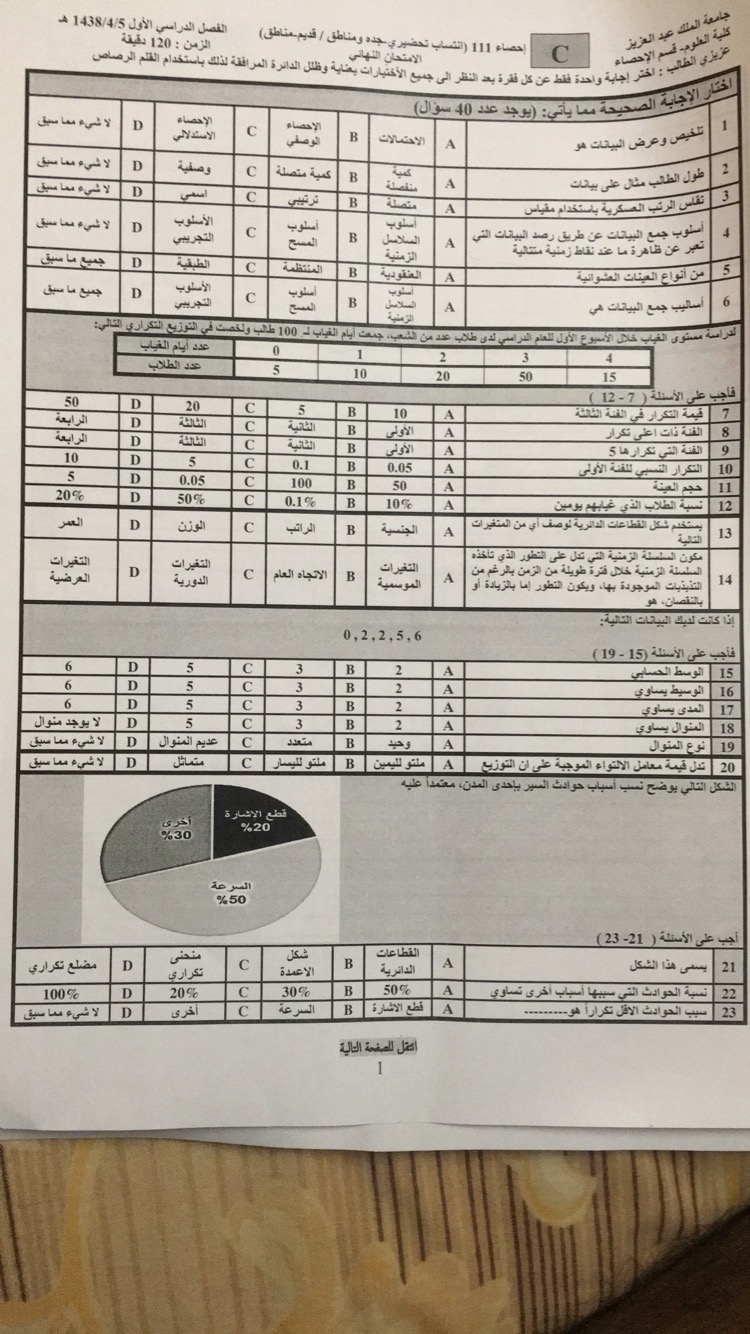 جامعة الملك عبد العزيز
كلية العلوم- قسم الإحصاء
C
إحصاء 111 (انتساب تحضيري-جده ومناطق / قديم-مناطق)
الامتحان النهائي
الفصل الدراسي الأول 1438/4/5 هـ
الزمن : 120 دقيقة
عزيزي الطالب : اختر إجابة واحدة فقط عن كل فقرة بعد النظر الى جميع الأختيارات بعناية وظلل الدائرة المرافقة لذلك باستخدام القلم الرصاص
اختار الإجابة الصحيحة مما يأتي: (يوجد عدد 40 سؤال)
1 تلخيص وعرض البيانات هو A الاحتمالات B الإحصاء الوصفي C الإحصاء الاستدلالي D لا شيء مما سبق
2 طول الطالب مثال على بيانات A كمية منفصلة B كمية متصلة C وصفية D لا شيء مما سبق
3 تقاس الرتب العسكرية باستخدام مقياس A متصلة B ترتيبي C اسمي D لا شيء مما سبق
4 أسلوب جمع البيانات عن طريق رصد البيانات التي تعبر عن ظاهرة ما عند نقاط زمنية متتالية A أسلوب السلاسل الزمنية B أسلوب المسح C الأسلوب التجريبي D لا شيء مما سبق
5 من أنواع العينات العشوائية A العنقودية B المنتظمة C الطبقية D جميع ما سبق
6 أساليب جمع البيانات هي A أسلوب السلاسل الزمنية B أسلوب المسح C الأسلوب التجريبي D جميع ما سبق
لدراسة مستوى الغياب خلال الأسبوع الأول للعام الدراسي لدى طلاب عدد من الشعب، جمعت أيام الغياب لـ 100 طالب ولخصت في التوزيع التكراري التالي:
عدد أيام الغياب 0 1 2 3 4
عدد الطلاب 5 10 20 50 15
فأجب على الأسئلة ( 7 - 12)
7 قيمة التكرار في الفئة الثالثة A 10 B 5 C 20 D 50
8 الفئة ذات اعلى تكرار A الأولى B الثانية C الثالثة D الرابعة
9 الفئة التي تكرارها 5 A الأولى B الثانية C الثالثة D الرابعة
10 التكرار النسبي للفئة الأولى A 0.05 B 0.1 C 5 D 10
11 حجم العينة A 50 B 100 C 0.05 D 5
12 نسبة الطلاب الذي غيابهم يومين A 10% B 0.1% C 50% D 20%
13 يستخدم شكل القطاعات الدائرية لوصف أي من المتغيرات التالية A الجنسية B الراتب C الوزن D العمر
14 مكون السلسلة الزمنية التي تدل على التطور الذي تأخذه السلسلة الزمنية خلال فترة طويلة من الزمن بالرغم من التذبذبات الموجودة بها، ويكون التطور إما بالزيادة أو بالنقصان، هو A التغيرات الموسمية B الاتجاه العام C التغيرات الدورية D التغيرات العرضية
إذا كانت لديك البيانات التالية:
0 , 2 , 2 , 5 , 6
فأجب على الأسئلة (15 - 19)
15 الوسط الحسابي A 2 B 3 C 5 D 6
16 الوسيط يساوي A 2 B 3 C 5 D 6
17 المدى يساوي A 2 B 3 C 5 D 6
18 المنوال يساوي A 2 B 3 C 5 D لا يوجد منوال
19 نوع المنوال A وحيد B متعدد C عديم المنوال D لا شيء مما سبق
20 تدل قيمة معامل الالتواء الموجبة على ان التوزيع A ملتو لليمين B ملتو لليسار C متماثل D لا شيء مما سبق
الشكل التالي يوضح نسب أسباب حوادث السير بإحدى المدن، معتمداً عليه
قطع الاشارة
%20
أخرى
%30
السرعة
%50
أجب على الأسئلة ( 21- 23)
21 يسمى هذا الشكل A القطاعات الدائرية B شكل الاعمدة C منحنى تكراري D مضلع تكراري
22 نسبة الحوادث التي سببها أسباب أخرى تساوي A 50% B 30% C 20% D 100%
23 سبب الحوادث الاقل تكراراً هو--------- A قطع الاشارة B السرعة C أخرى D لا شيء مما سبق
انتقل للصفحة التالية
1